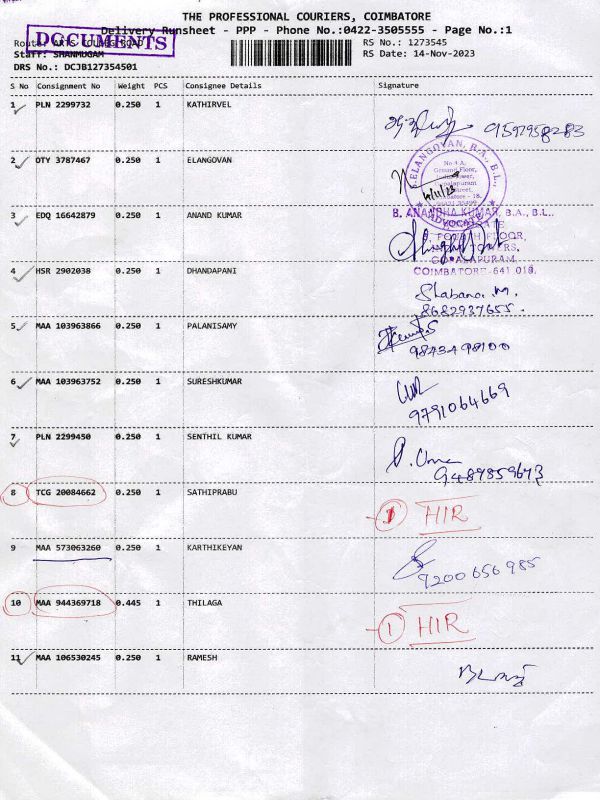 THE PROFESSIONAL COURIERS, COIMBATORE
Delivery Runsheet - PPP - Phone No.:0422-3505555 - Page No.:1
DOCUMENTS
Route: ARTS COLLEGE ROAD
RS No.: 1273545
Staff: SHANMUGAM
RS Date: 14-Nov-2023
DRS No.: DCJB127354501
S No Consignment No Weight PCS Consignee Details Signature
1 PLN 2299732 0.250 1 KATHIRVEL
9597958283
2 OTY 3787467 0.250 1 ELANGOVAN
ELANGOVAN, B.A., B.L.,
No 4 A,
Ground Floor,
ADVOCATE
3 EDQ 16642879 0.250 1 ANAND KUMAR
B. ANANDHA KUMAR, B.A., B.L.,
GOPALAPURAM,
COIMBATORE-641 018.
4 HSR 2902038 0.250 1 DHANDAPANI
Shabana.M.
8682937655.
5 MAA 103963866 0.250 1 PALANISAMY
9843498100
6 MAA 103963752 0.250 1 SURESHKUMAR
9791064669
7 PLN 2299450 0.250 1 SENTHIL KUMAR
9487859673
8 TCG 20084662 0.250 1 SATHIPRABU
1 HIR
9 MAA 573063260 0.250 1 KARTHIKEYAN
9200656985
10 MAA 944369718 0.445 1 THILAGA
1 HIR
11 MAA 106530245 0.250 1 RAMESH